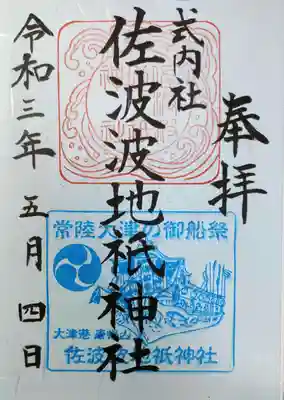 奉拝
式内社
佐波波地祇神社
令和三年 五月 四日
常陸大津の御船祭
大津港 唐帰山
佐波波地祇神社